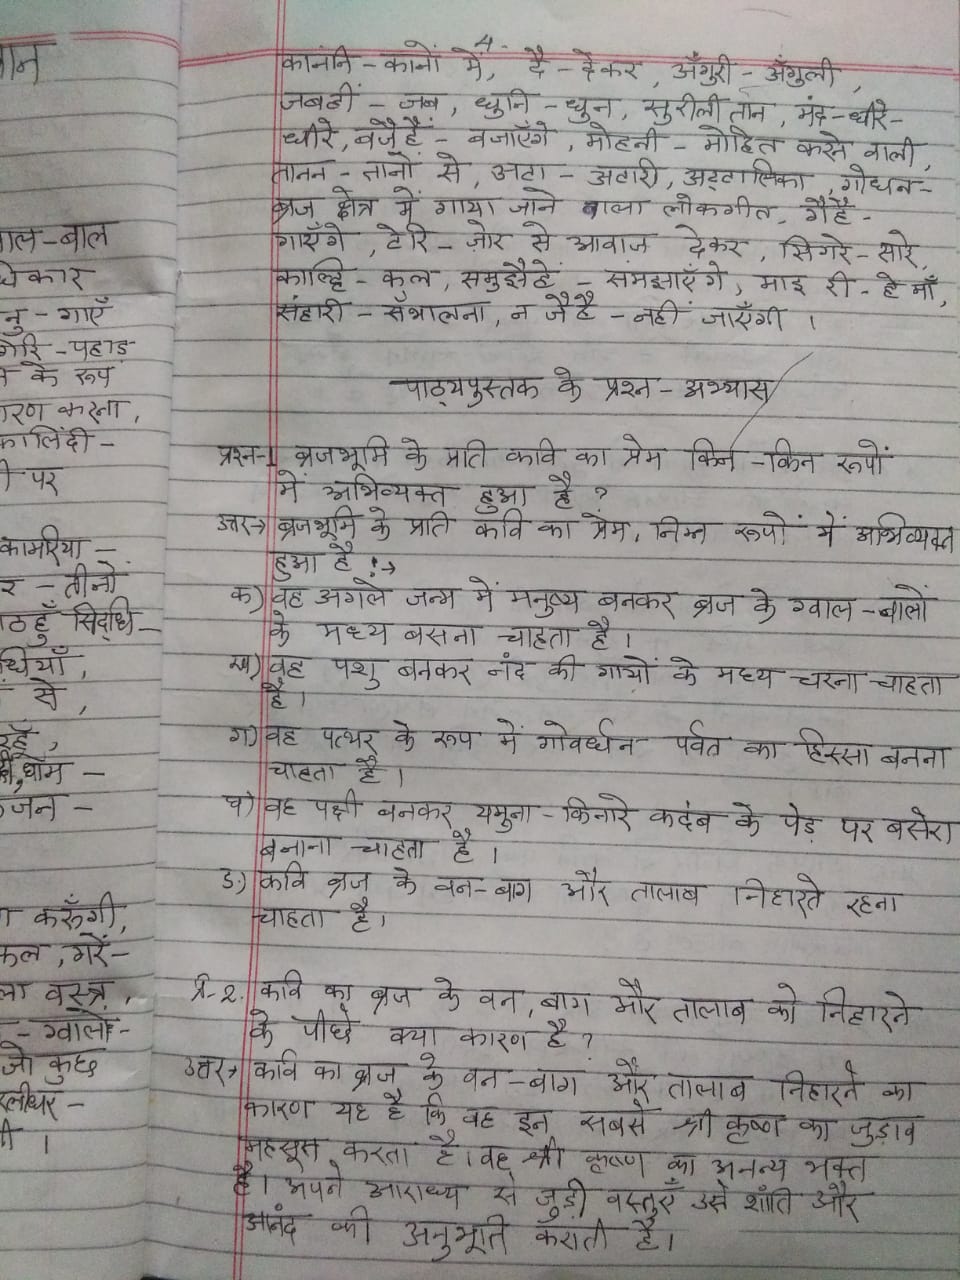 4.
काननि - कानों में, दै - देकर, अँगुरी - अँगुली,
जबहीं - जब, धुनि - धुन, सुरीली तान, मंद - धीरे-
धीरे, बजैहैं - बजाएँगे, मोहनी - मोहित करने वाली,
तानन - तानों से, अटा - अटारी, अट्टालिका, गोधन-
ब्रज क्षेत्र में गाया जाने वाला लोकगीत, गैहैं-
गाएँगे, टेरि - ज़ोर से आवाज देकर, सिगरे - सारे,
काल्हि - कल, समुझैहैं - समझाएँगे, माइ री - हे माँ,
संहारी - सँभालना, न जैहै - नहीं जाएँगी ।
पाठ्यपुस्तक के प्रश्न - अभ्यास
प्रश्न-1 ब्रजभूमि के प्रति कवि का प्रेम किन - किन रूपों
में अभिव्यक्त हुआ है ?
उत्तर→ ब्रजभूमि के प्रति कवि का प्रेम, निम्न रूपों में अभिव्यक्त
हुआ है :→
क) वह अगले जन्म में मनुष्य बनकर ब्रज के ग्वाल - बालों
के मध्य बसना चाहता है ।
ख) वह पशु बनकर नंद की गायों के मध्य चरना चाहता
है ।
ग) वह पत्थर के रूप में गोवर्धन पर्वत का हिस्सा बनना
चाहता है ।
घ) वह पक्षी बनकर यमुना - किनारे कदंब के पेड़ पर बसेरा
बनाना चाहता है ।
ङ) कवि ब्रज के वन - बाग और तालाब निहारते रहना
चाहता है ।
प्र-2. कवि का ब्रज के वन, बाग और तालाब को निहारने
के पीछे क्या कारण है ?
उत्तर→ कवि का ब्रज के वन - बाग और तालाब निहारने का
कारण यह है कि वह इन सबसे श्री कृष्ण का जुड़ाव
महसूस करता है। वह श्री कृष्ण का अनन्य भक्त
है। अपने आराध्य से जुड़ी वस्तुएँ उसे शांति और
आनंद की अनुभूति कराती है।
ाल - बाल
कार
नु - गाएँ
गिरि - पहाड़
के रूप
करना,
कालिंदी -
पर
कामरिया -
- तीनों
सिद्धि -
से,
करूँगी,
वस्त्र,
- ग्वालों -
जो कुछ